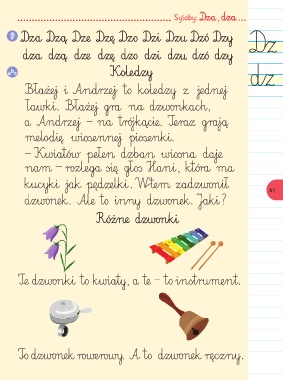 Sylaby: Dza, dza ...
Dza Dzą Dze Dzę Dzo Dzi Dzu Dzó Dzy
dza dzą dze dzę dzo dzi dzu dzó dzy
Dz
dz
Koledzy
Błażej i Andrzej to koledzy z jednej
ławki. Błażej gra na dzwonkach,
a Andrzej – na trójkącie. Teraz grają
melodię wiosennej piosenki.
– Kwiatów pełen dzban wiosna daje
nam – rozlega się głos Hani, która ma
kucyki jak pędzelki. Wtem zadzwonił
dzwonek. Ale to inny dzwonek. Jaki?
61
Różne dzwonki
Te dzwonki to kwiaty, a te – to instrument.
To dzwonek rowerowy. A to dzwonek ręczny.